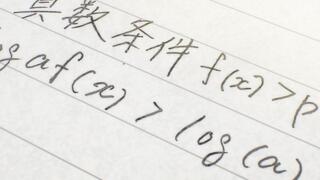 真数条件 f(x)>p
log af(x)>log(a)